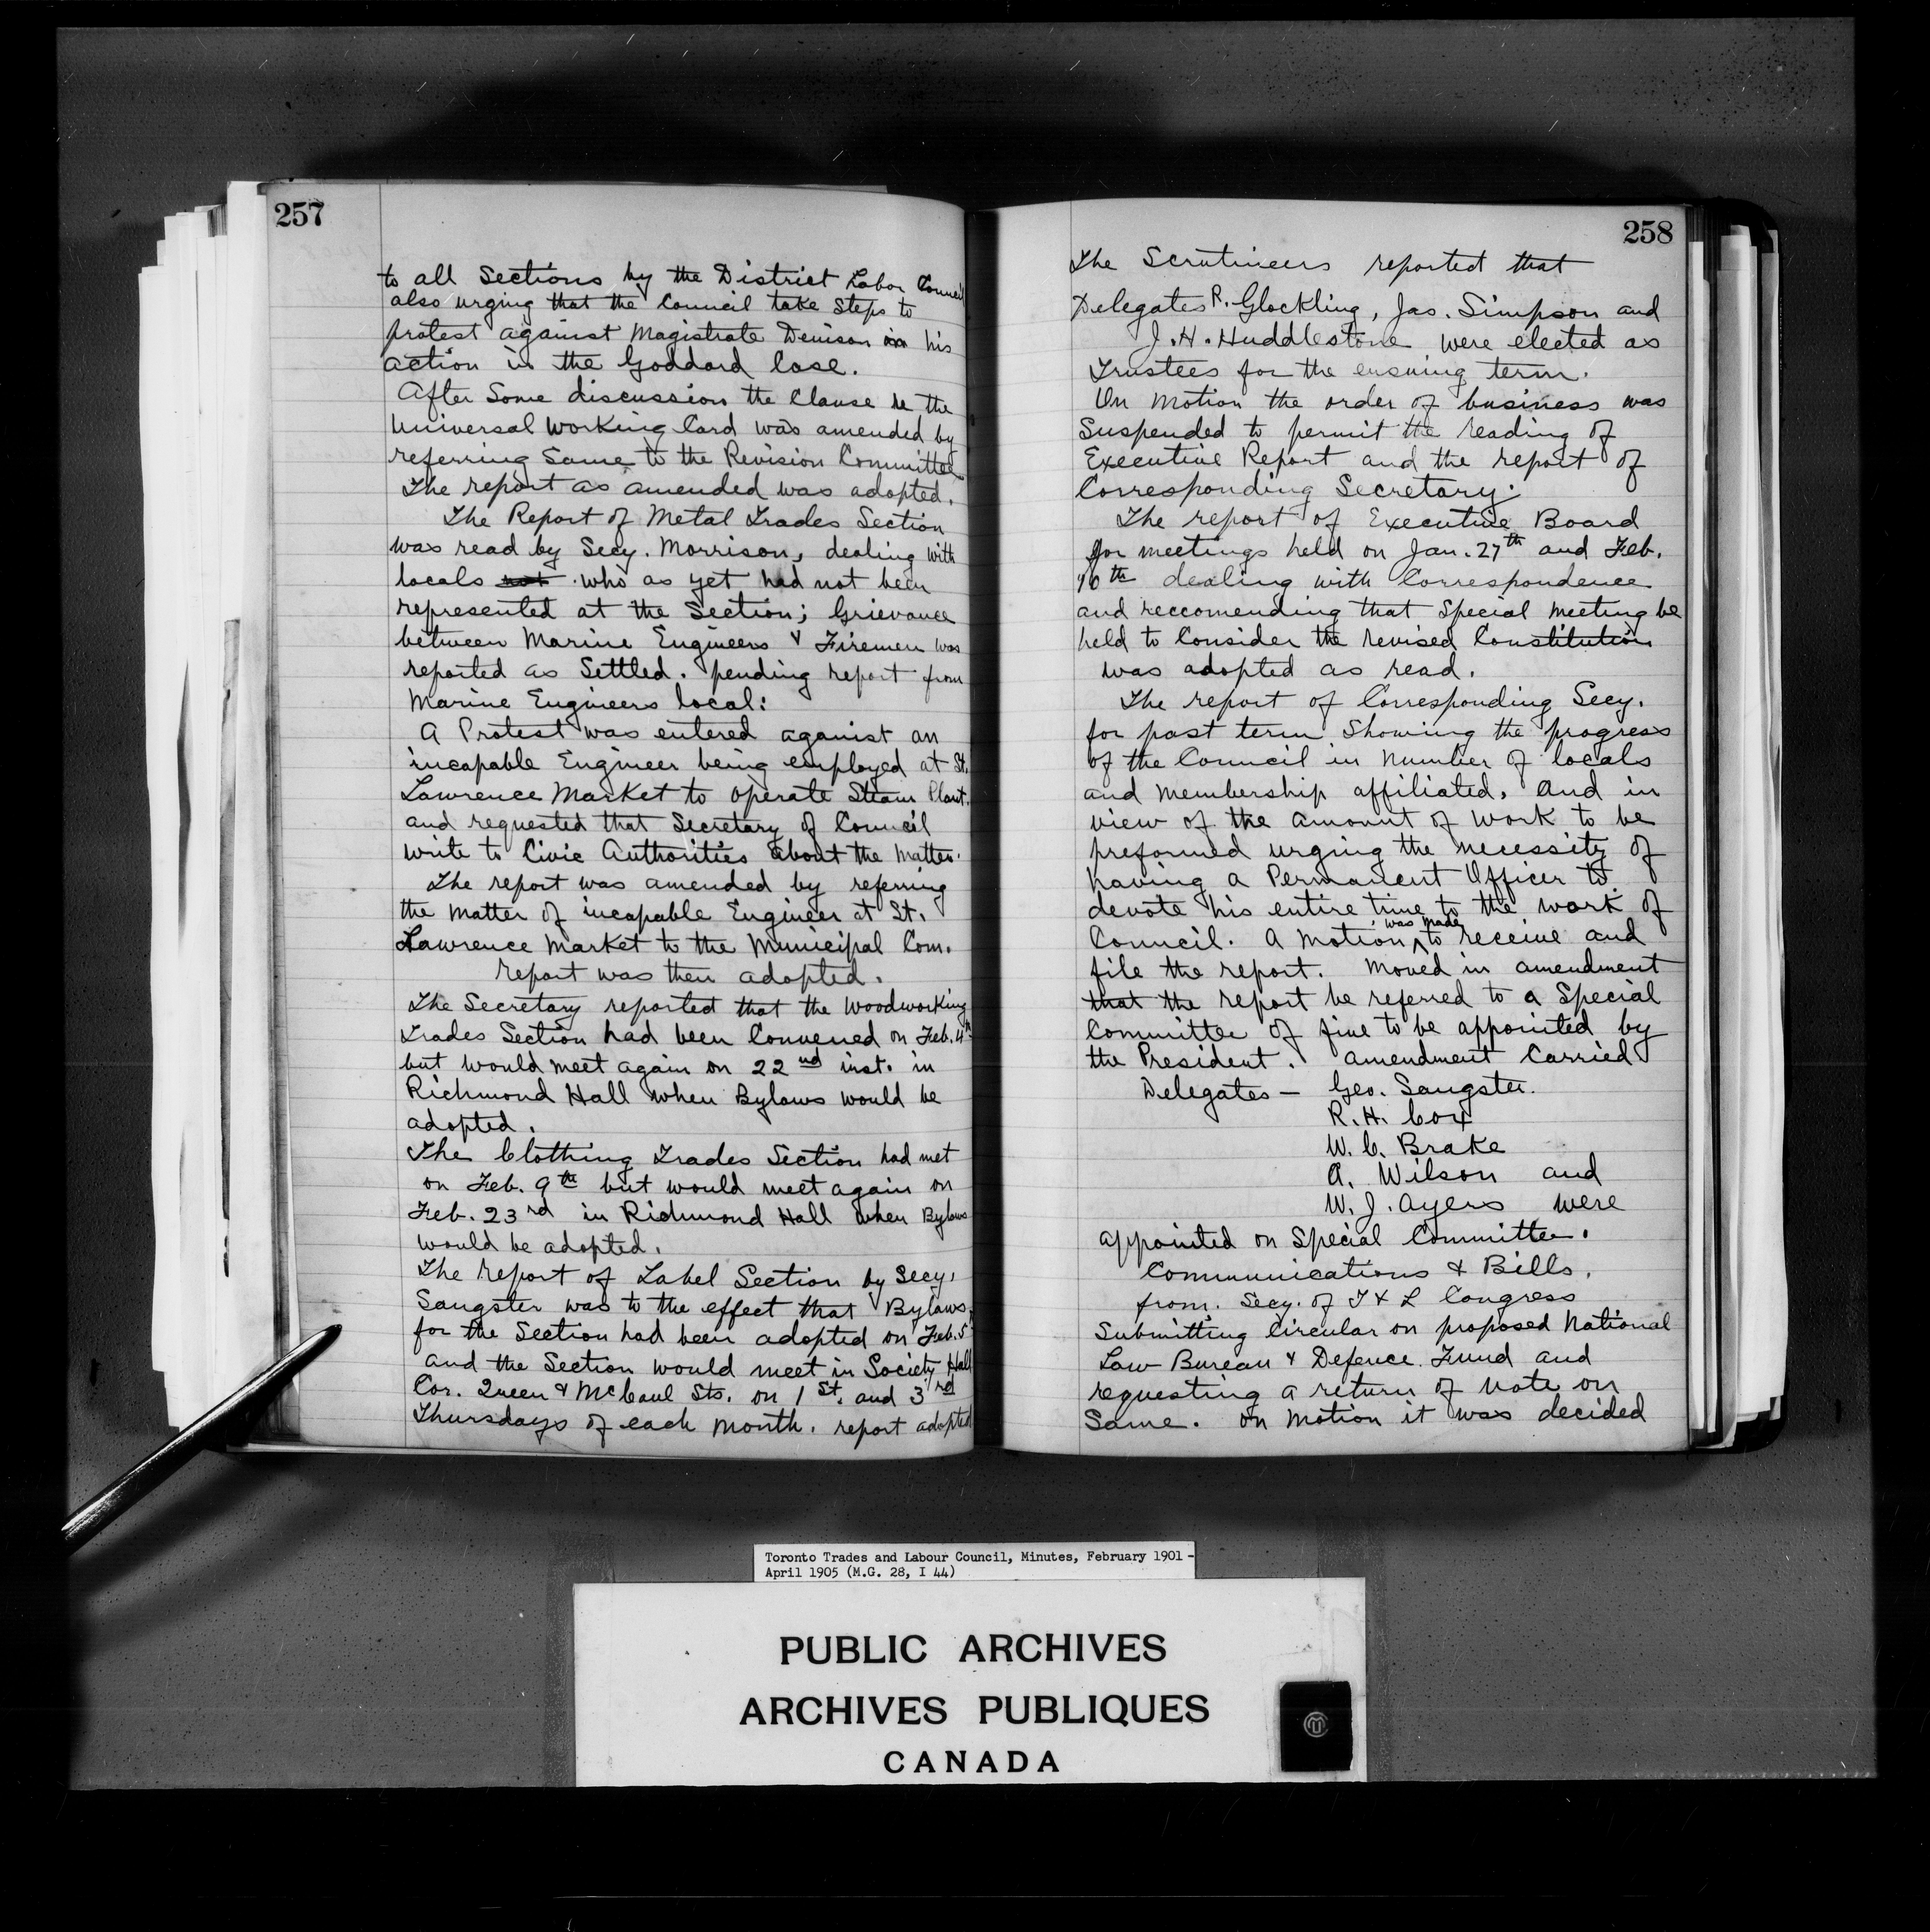 257
to all Sections by the District Labor Council
also urging that the Council take Steps to
protest against Magistrate Denison in his
action in the Goddard Case.
After Some discussion the Clause re the
Universal Working Card was amended by
referring Same to the Revision Committee
The report as amended was adopted.
The Report of Metal Trades Section
was read by Secy. Morrison, dealing with
locals not who as yet had not been
represented at the Section; Grievance
between Marine Engineers & Firemen was
reported as Settled. pending report from
Marine Engineers local:
A Protest was entered aganist an
incapable Engineer being employed at St.
Lawrence Market to operate Steam Plant.
and requested that Secretary of Council
write to Civic Authorities about the Matter.
The report was amended by referring
the Matter of incapable Engineer at St.
Lawrence Market to the Municipal Com.
report was then adopted.
The Secretary reported that the Woodworking
Trades Section had been Convened on Feb. 4th
but would meet again on 22nd inst. in
Richmond Hall when Bylaws would be
adopted.
The Clothing Trades Section had met
on Feb. 9th but would meet again on
Feb. 23rd in Richmond Hall when Bylaws
would be adopted.
The report of Label Section by Secy.
Sangster was to the effect that Bylaws
for the Section had been adopted on Feb. 5
and the Section would meet in Society Hall
Cor. Queen & McCaul Sts. on 1st. and 3rd
Thursdays of each Month. report adopted
258
The Scrutineers reported that
Delegates R. Glockling, Jas. Simpson and
J. H. Huddlestone were elected as
Trustees for the ensuing term.
On Motion the order of business was
Suspended to permit the reading of
Executive Report and the report of
Corresponding Secretary.
The report of Executive Board
for meetings held on Jan. 27th and Feb.
10th dealing with Correspondence
and reccomending that Special Meeting be
held to Consider the revised Constitution
was adopted as read.
The report of Corresponding Secy.
for past term Showing the progress
of the Council in number of locals
and membership affiliated. And in
view of the amount of work to be
preformed urging the necessity of
having a Permanent Officer to
devote his entire time to the work of
Council. A Motion was made to receive and
file the report. Moved in amendment
that the report be referred to a Special
Committee of five to be appointed by
the President. Amendment Carried
Delegates - Geo. Sangster.
R. H. Cox
W. C. Brake
A. Wilson and
W. J. Ayers were
appointed on Special Committee.
Communications & Bills.
from. Secy. of T & L Congress
Submitting Circular on proposed National
Law Bureau & Defence Fund and
requesting a return of Vote on
Same. On Motion it was decided
Toronto Trades and Labour Council, Minutes, February 1901 -
April 1905 (M.G. 28, I 44)
PUBLIC ARCHIVES
ARCHIVES PUBLIQUES
CANADA